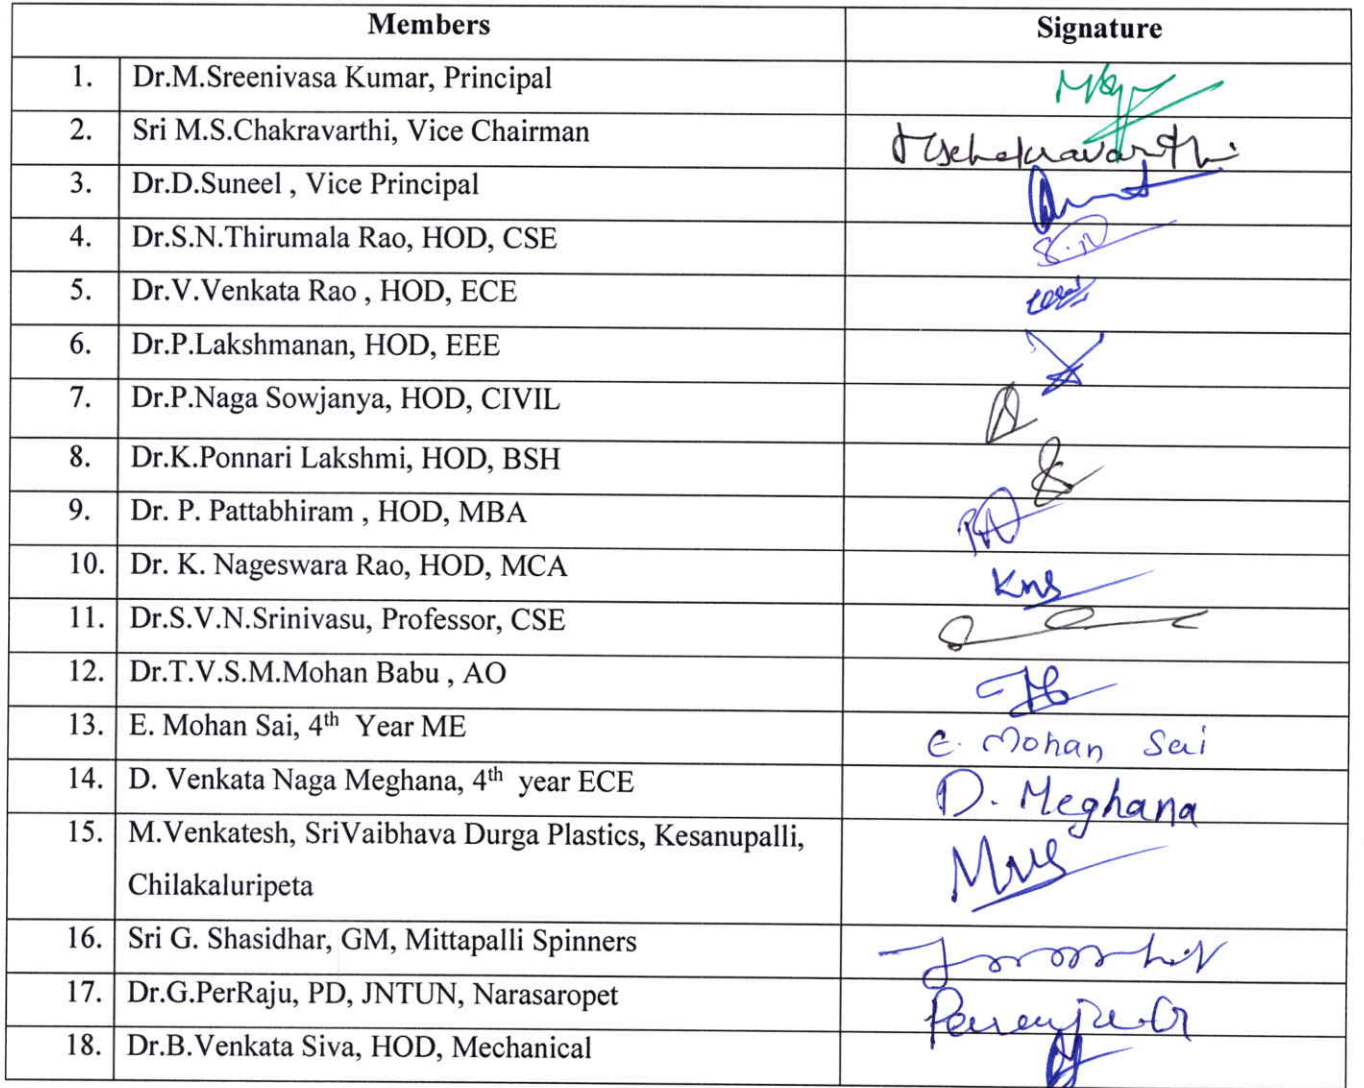 Members Signature
1. Dr.M.Sreenivasa Kumar, Principal
2. Sri M.S.Chakravarthi, Vice Chairman MSchakravarthi
3. Dr.D.Suneel , Vice Principal
4. Dr.S.N.Thirumala Rao, HOD, CSE S.N
5. Dr.V.Venkata Rao , HOD, ECE
6. Dr.P.Lakshmanan, HOD, EEE
7. Dr.P.Naga Sowjanya, HOD, CIVIL
8. Dr.K.Ponnari Lakshmi, HOD, BSH
9. Dr. P. Pattabhiram , HOD, MBA
10. Dr. K. Nageswara Rao, HOD, MCA Kns
11. Dr.S.V.N.Srinivasu, Professor, CSE
12. Dr.T.V.S.M.Mohan Babu , AO
13. E. Mohan Sai, 4th Year ME E. Mohan Sai
14. D. Venkata Naga Meghana, 4th year ECE D. Meghana
15. M.Venkatesh, SriVaibhava Durga Plastics, Kesanupalli,
Chilakaluripeta
16. Sri G. Shasidhar, GM, Mittapalli Spinners
17. Dr.G.PerRaju, PD, JNTUN, Narasaropet
18. Dr.B.Venkata Siva, HOD, Mechanical